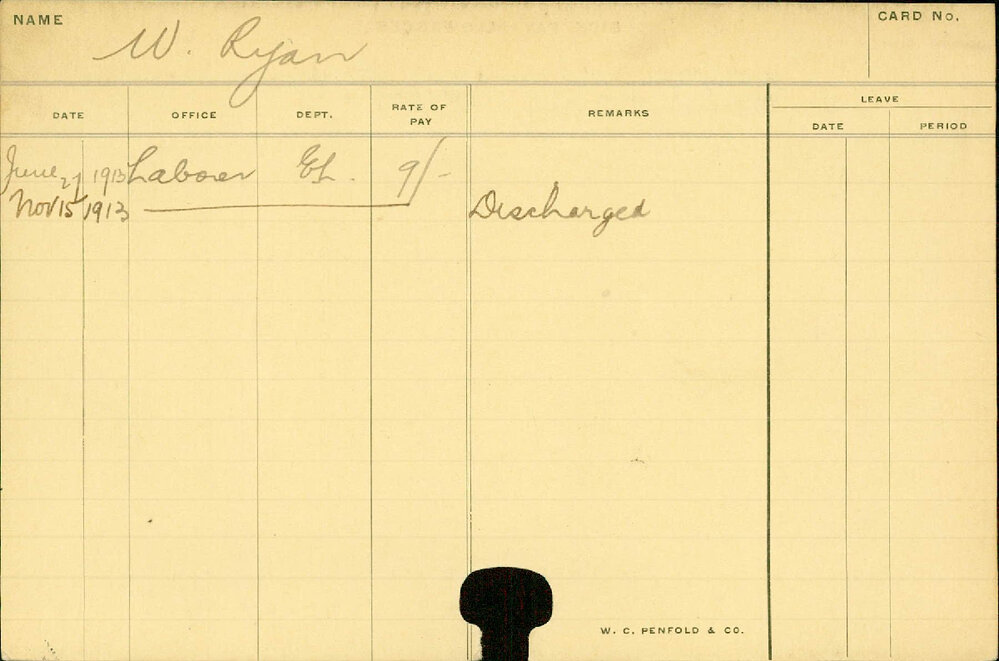 NAME W. Ryan CARD No.
DATE OFFICE DEPT. RATE OF PAY REMARKS LEAVE
DATE PERIOD
June 27 1913 Laborer EL. 9/-
Nov 15 1913 Discharged
W. C. PENFOLD & CO.